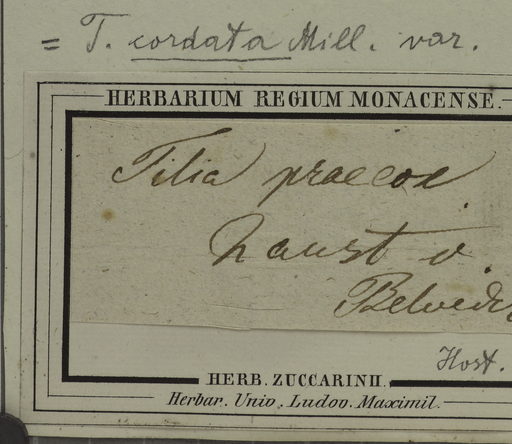 = T. cordata Mill. var.
HERBARIUM REGIUM MONACENSE.
Tilia praecox
Host.
HERB. ZUCCARINII.
Herbar. Univ. Ludov. Maximil.